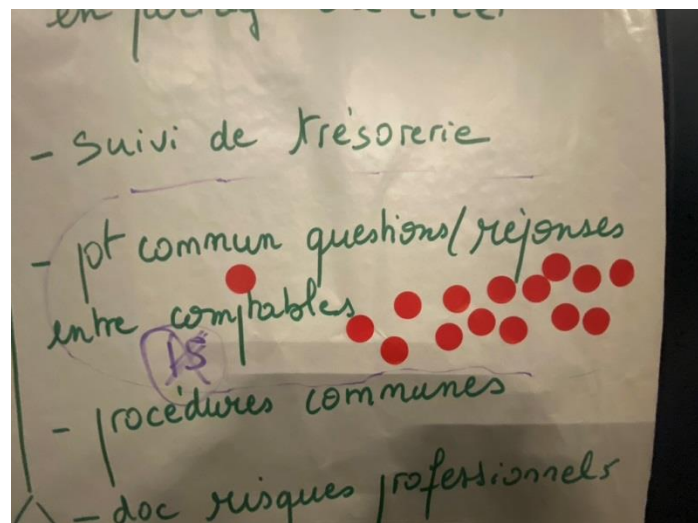 - Suivi de trésorerie
- pt commun questions/réponses
entre comptables
15
- procédures communes
- doc risques professionnels